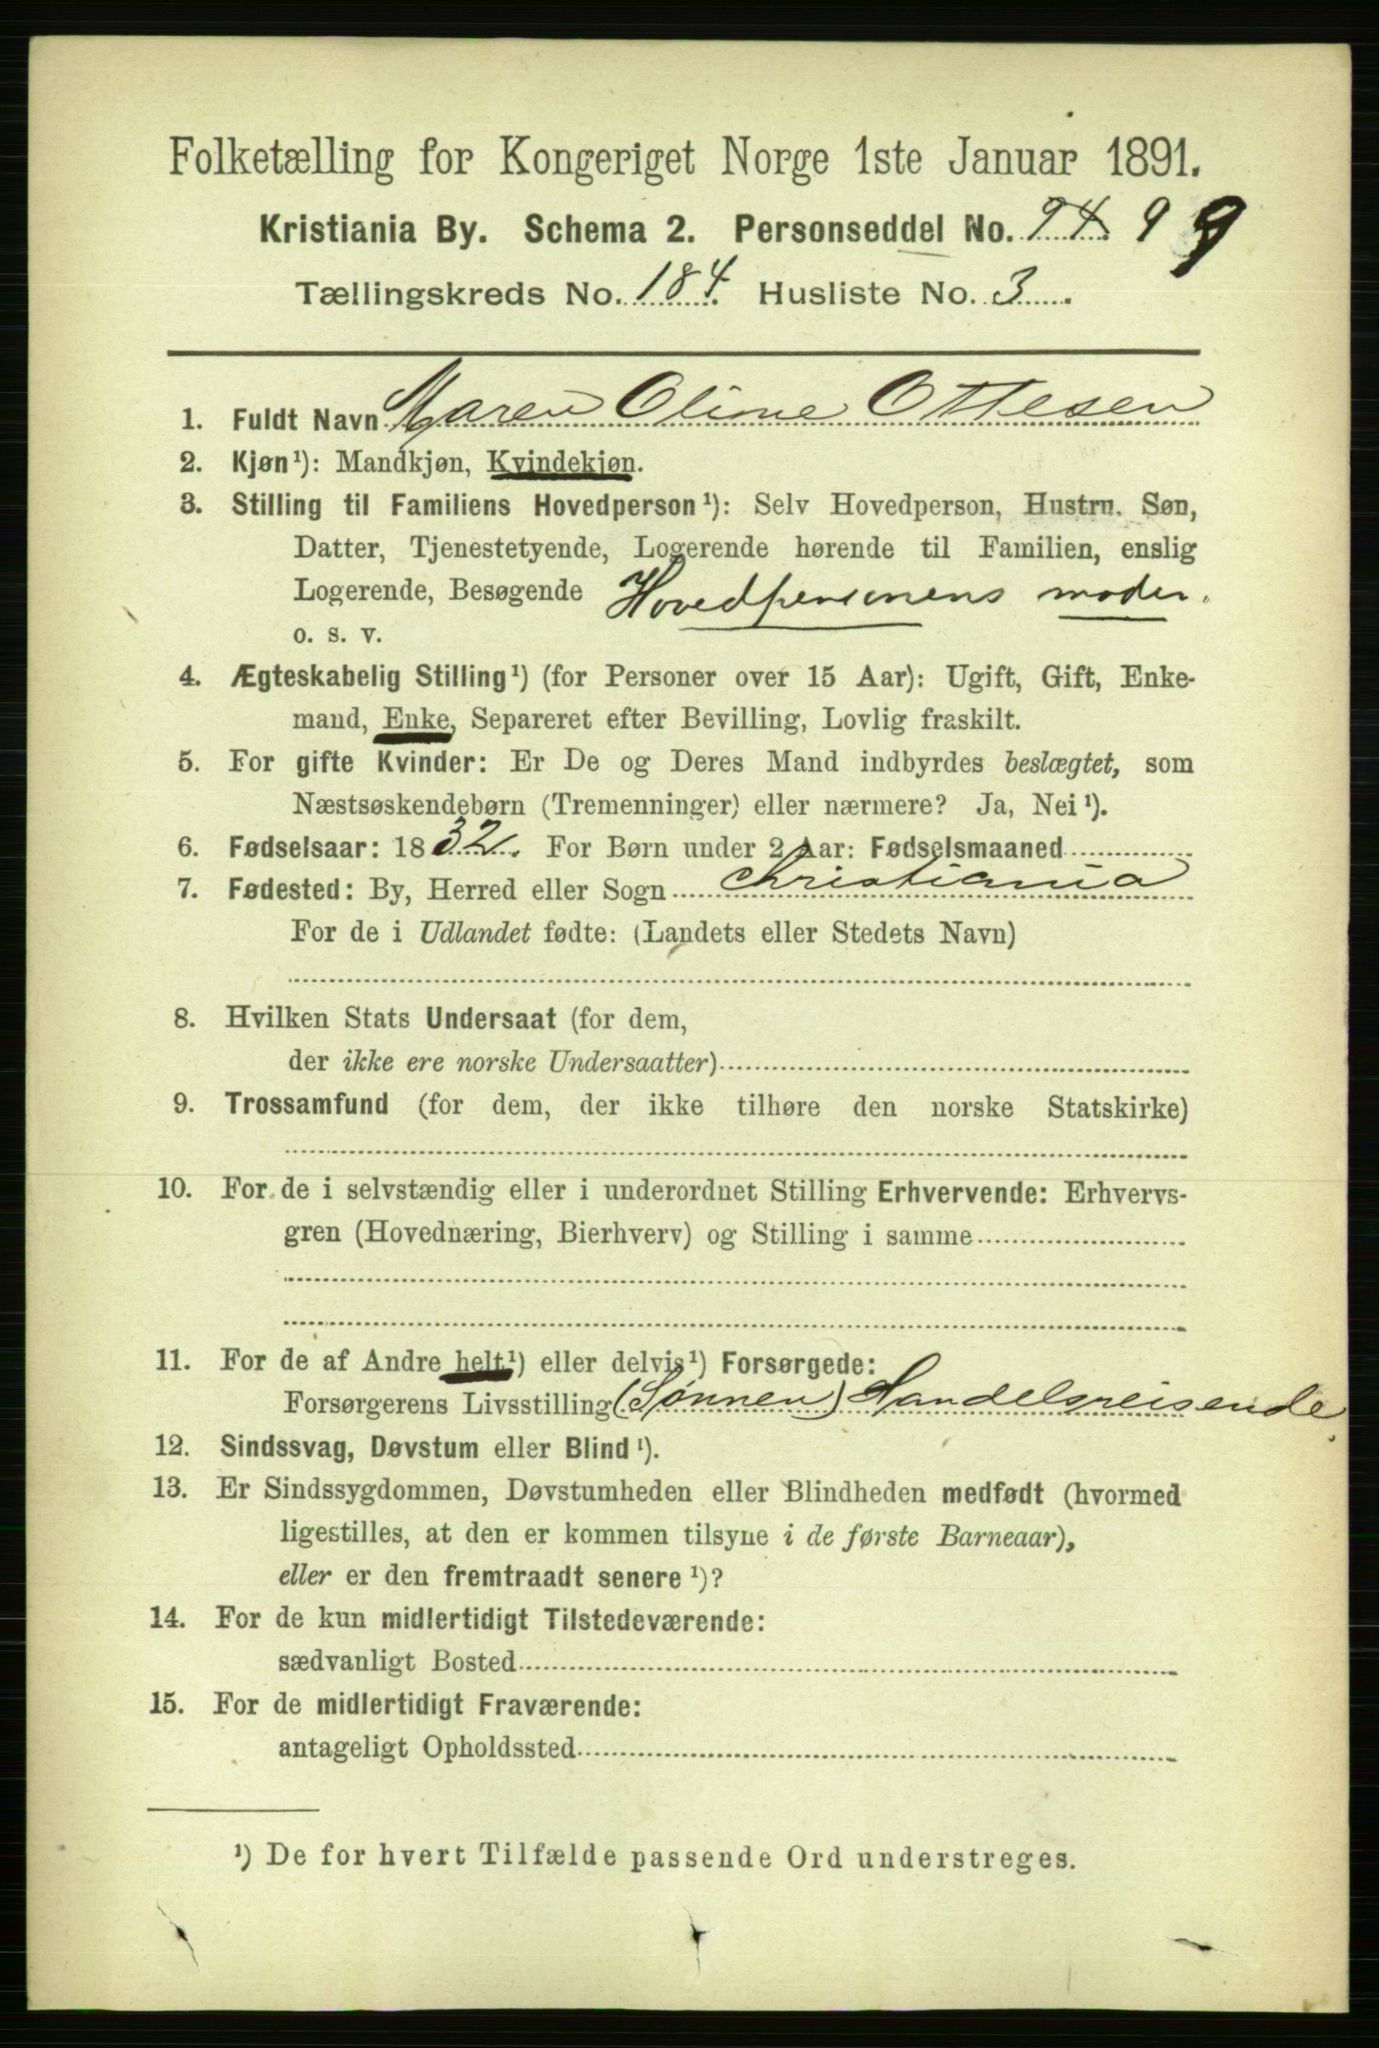 Folketælling for Kongeriget Norge 1ste Januar 1891.
Kristiania By. Schema 2. Personseddel No. 94 99
Tællingskreds No. 184. Husliste No. 3.
1. Fuldt Navn Maren Oline Ottesen
2. Kjøn¹): Mandkjøn, Kvindekjøn.
3. Stilling til Familiens Hovedperson¹): Selv Hovedperson, Hustru, Søn,
Datter, Tjenestetyende, Logerende hørende til Familien, enslig
Logerende, Besøgende Hovedpersonens moder.
o. s. v.
4. Ægteskabelig Stilling¹) (for Personer over 15 Aar): Ugift, Gift, Enke-
mand, Enke, Separeret efter Bevilling, Lovlig fraskilt.
5. For gifte Kvinder: Er De og Deres Mand indbyrdes beslægtet, som
Næstsøskendebørn (Tremenninger) eller nærmere? Ja, Nei¹).
6. Fødselsaar: 1832. For Børn under 2 Aar: Fødselsmaaned
7. Fødested: By, Herred eller Sogn Christiania
For de i Udlandet fødte: (Landets eller Stedets Navn)
8. Hvilken Stats Undersaat (for dem,
der ikke ere norske Undersaatter)
9. Trossamfund (for dem, der ikke tilhøre den norske Statskirke)
10. For de i selvstændig eller i underordnet Stilling Erhvervende: Erhvervs-
gren (Hovednæring, Bierhverv) og Stilling i samme
11. For de af Andre helt¹) eller delvis¹) Forsørgede:
Forsørgerens Livsstilling (Sønnen) Handelsreisende.
12. Sindssvag, Døvstum eller Blind¹).
13. Er Sindssygdommen, Døvstumheden eller Blindheden medfødt (hvormed
ligestilles, at den er kommen tilsyne i de første Barneaar),
eller er den fremtraadt senere¹)?
14. For de kun midlertidigt Tilstedeværende:
sædvanligt Bosted
15. For de midlertidigt Fraværende:
antageligt Opholdssted
¹) De for hvert Tilfælde passende Ord understreges.